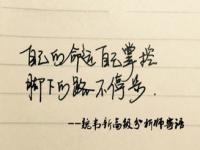 自己的命运自己掌控
脚下的路不停步.
---魏韦新高级分析师寄语